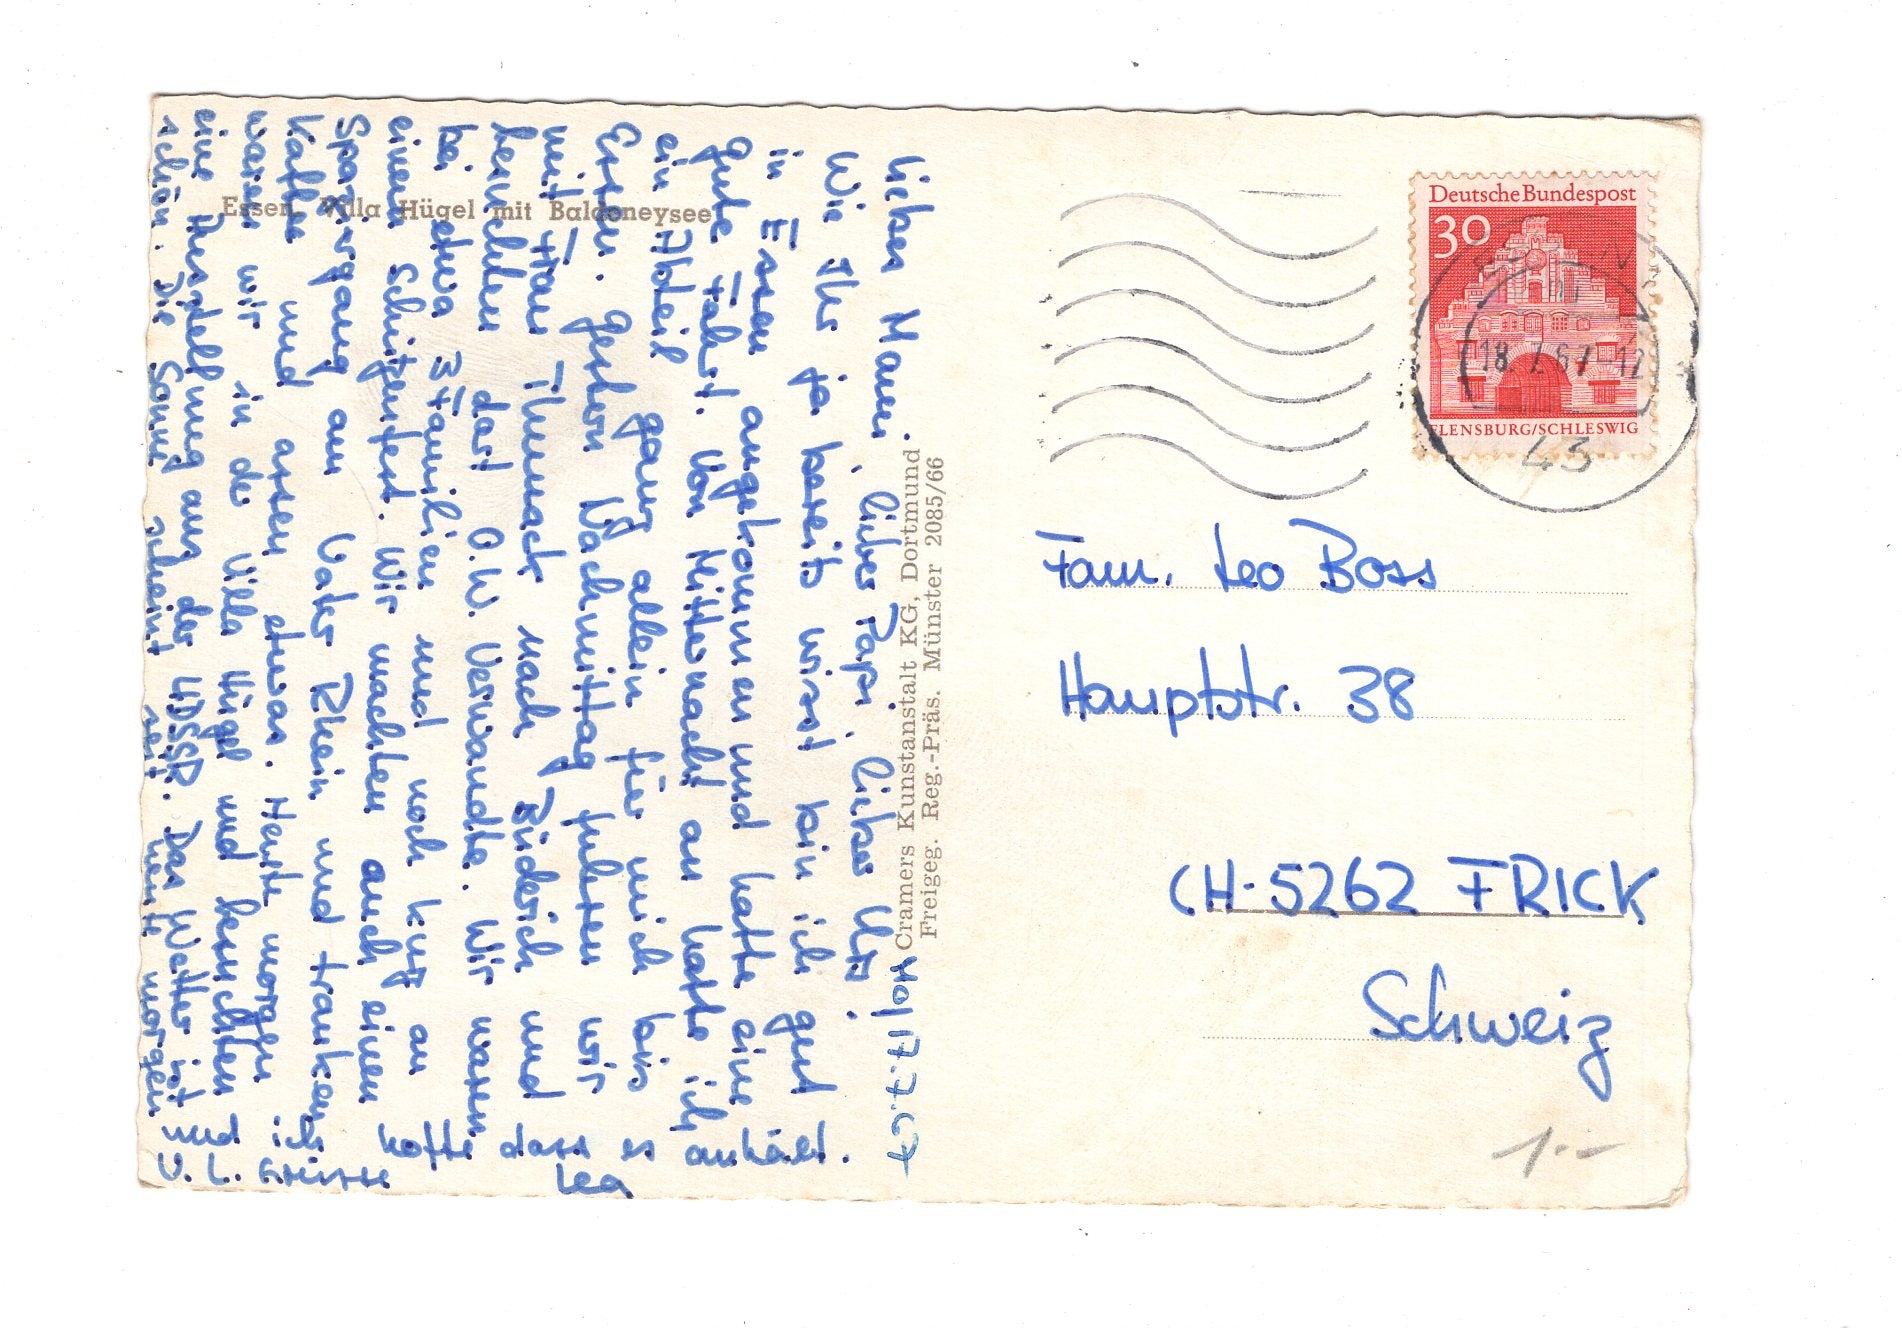 Essen, Villa Hügel mit Baldeneysee
Mo, 17.7.67
Liebes Mami, lieber Papi, lieber Urs,
Wie Ihr ja bereits wisst bin ich gut
in Essen angekommen und hatte eine
gute Fahrt. Von Mitternacht an hatte ich
ein Abteil ganz allein für mich bis
Essen. Gestern Nachmittag fuhren wir
mit Frau Thumack nach Büderich und
besuchten dort O.W. Verwandte. Wir waren
bei etwa 3 Familien und noch kurz an
einem Schützenfest. Wir machten auch einen
Spaziergang am Vater Rhein und tranken
Kaffee und assen etwas. Heute morgen
waren wir in der Villa Hügel und besuchten
eine Ausstellung aus der UDSSR. Das Wetter ist
schön. Die Sonne scheint seit
morgen und
hoffe dass es anhält.
Grüsse
Lea
Cramers Kunstanstalt KG, Dortmund
Freigeg. Reg.-Präs. Münster 2085/66
Deutsche Bundespost
30
FLENSBURG/SCHLESWIG
18.7.67 12
43
Fam. Leo Boss
Hauptstr. 38
CH-5262 FRICK
Schweiz
1.-